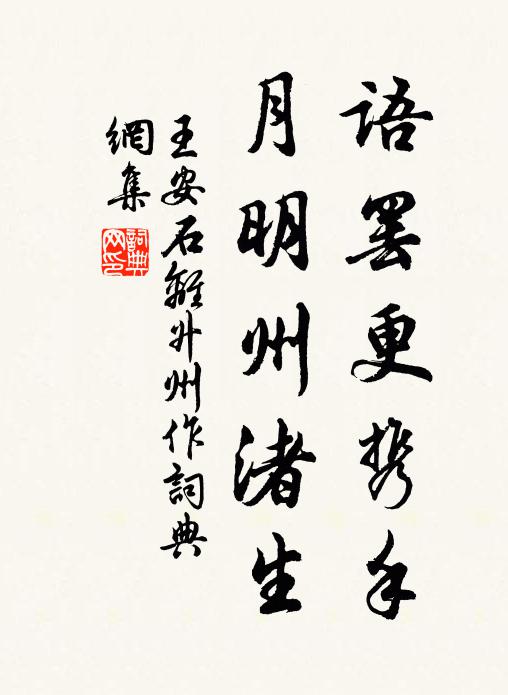 語罢更携手
月明州渚生
王安石離升州作詞典
網集
詞典網印